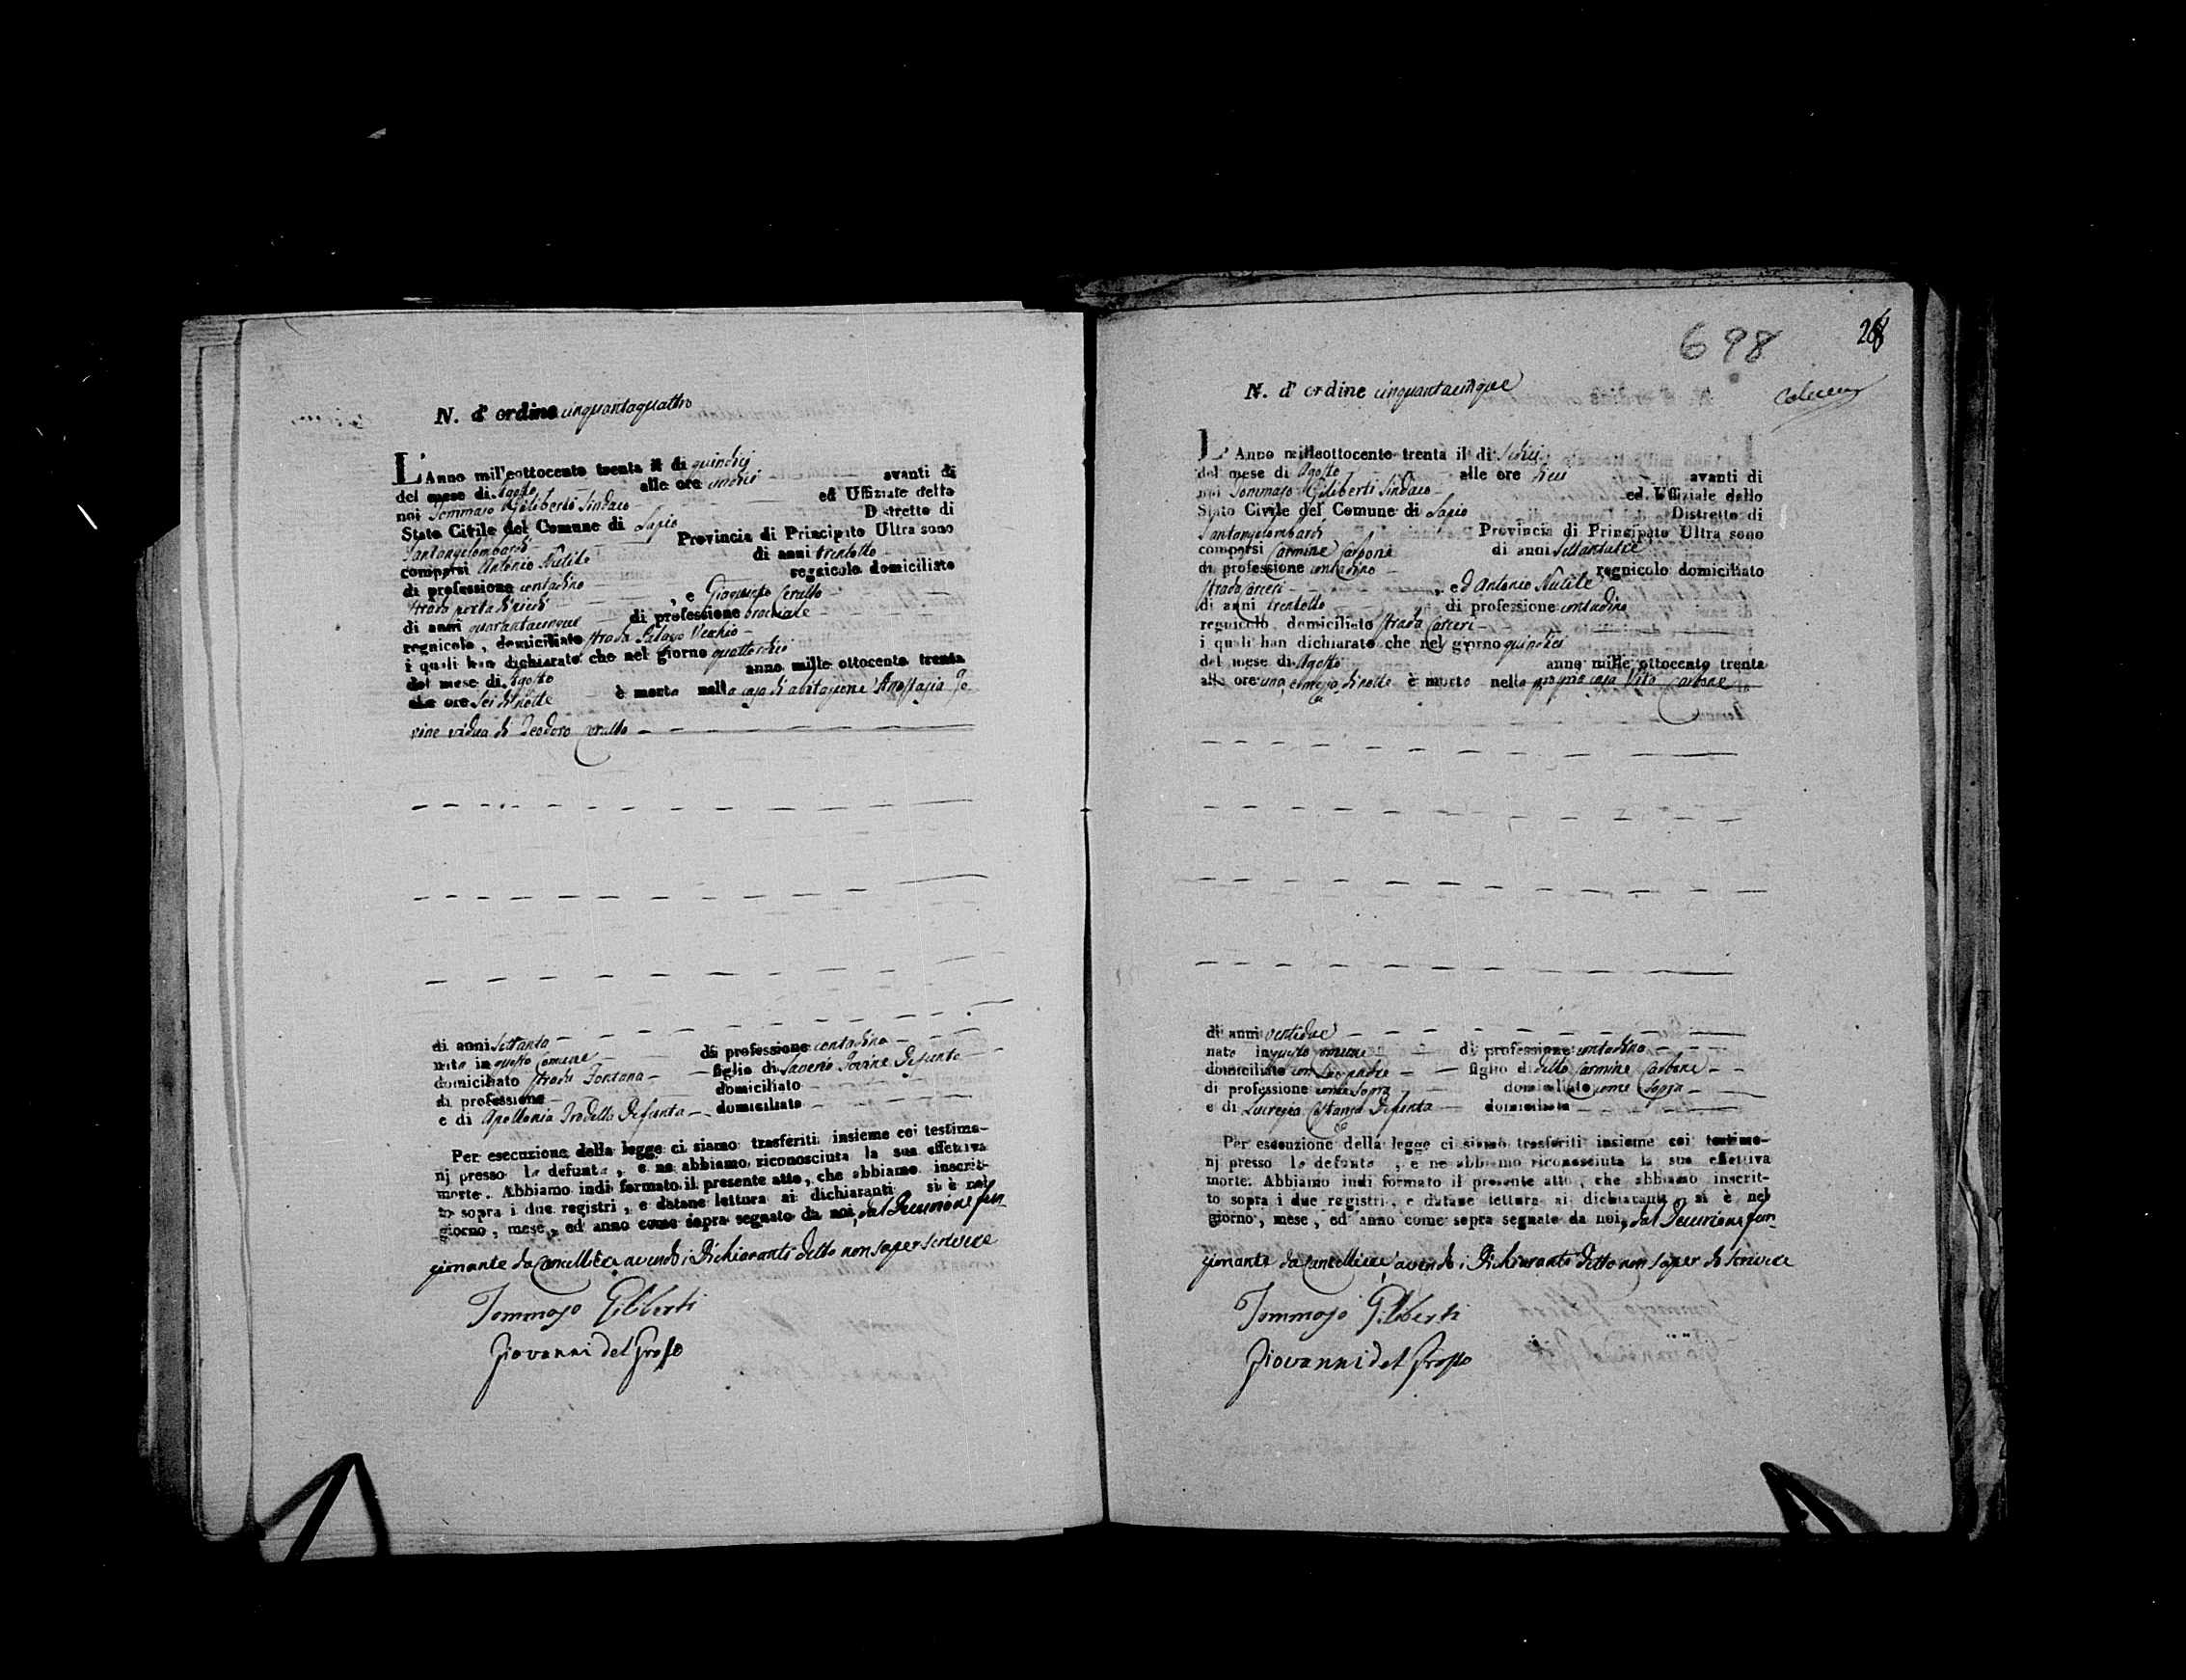 N. d' ordine cinquantaquattro
L' Anno mille ottocento trenta il di quindici
del mese di Agosto alle ore undici avanti di
noi Tommaso Giliberti Sindaco ed Uffiziale dello
Stato Civile del Comune di Lapio Distretto di
Santangelombardi Provincia di Principato Ultra sono
comparsi Antonio Nutile di anni trentotto
di professione contadino regnicolo domiciliato
strada porta di , e Giaquinto Cerullo
di anni quarantacinque di professione bracciale
regnicolo, domiciliato strada Palazzo Vecchio
i quali han dichiarato che nel giorno quattordici
del mese di Agosto anno mille ottocento trenta
alle ore sei di notte è morta nella casa di abitazione Anastasia Jo
vine vidua di Teodoro Cerullo
di anni settanta
nata in questo Comune di professione contadina
domiciliato strada Fontana figlia di Saverio Jovine defunto
di professione domiciliato
e di Apollonia defunta domiciliato
Per esecuzione della legge ci siamo trasferiti insieme coi testimo-
nj presso la defunta, e ne abbiamo riconosciuta la sua effettiva
morte. Abbiamo indi formato il presente atto, che abbiamo inscrit-
to sopra i due registri, e datane lettura ai dichiaranti si è nel
giorno, mese, ed anno come sopra segnato da noi, dal Decurione fun-
zionante da Cancelliere avendo i Dichiaranti detto non saper scrivere
Tommaso Giliberti
Giovanni del Grosso
698
268
N. d' ordine cinquantacinque
L' Anno milleottocento trenta il di sedici
del mese di Agosto alle ore dieci avanti di
noi Tommaso Giliberti Sindaco ed Uffiziale dello
Stato Civile del Comune di Lapio Distretto di
Santangelombardi Provincia di Principato Ultra sono
comparsi Carmine Carbone di anni settantatre
di professione contadino regnicolo domiciliato
strada Carceri , ed Antonio Nutile
di anni trentotto di professione contadino
regnicolo, domiciliato strada Carceri
i quali han dichiarato che nel giorno quindici
del mese di Agosto anno mille ottocento trenta
alle ore una e mezza di notte è morto nella propria casa Vito Carbone
di anni ventidue
nato in questo comune di professione contadino
domiciliato con suo padre figlio di detto Carmine Carbone
di professione come sopra domiciliato come sopra
e di Lucrezia Costanza defunta domiciliata
Per esecuzione della legge ci siamo trasferiti insieme coi testimo-
nj presso lo defunto, e ne abbiamo riconosciuta la sua effettiva
morte. Abbiamo indi formato il presente atto, che abbiamo inscrit-
to sopra i due registri, e datane lettura ai dichiaranti, si è nel
giorno, mese, ed anno come sopra segnato da noi, dal Decurione fun-
zionante da Cancelliere avendo i Dichiaranti detto non saper di scrivere
Tommaso Giliberti
Giovanni del Grosso